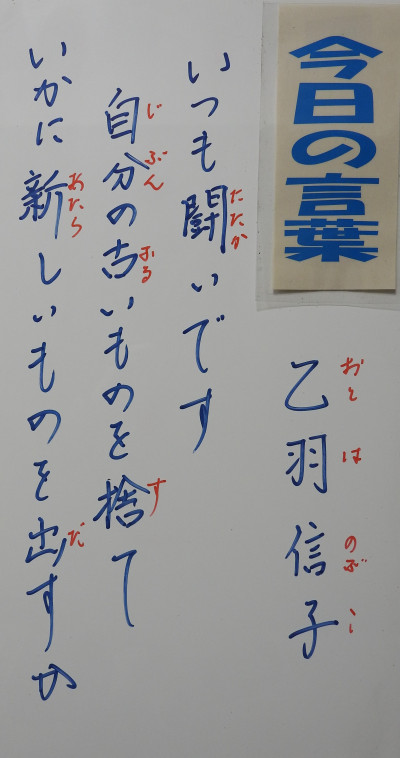 今日の言葉
乙羽信子
おとはのぶこ
いつも闘いです
たたか
自分の古いものを捨て
じぶんふるす
いかに新しいものを出すか
あたらだ